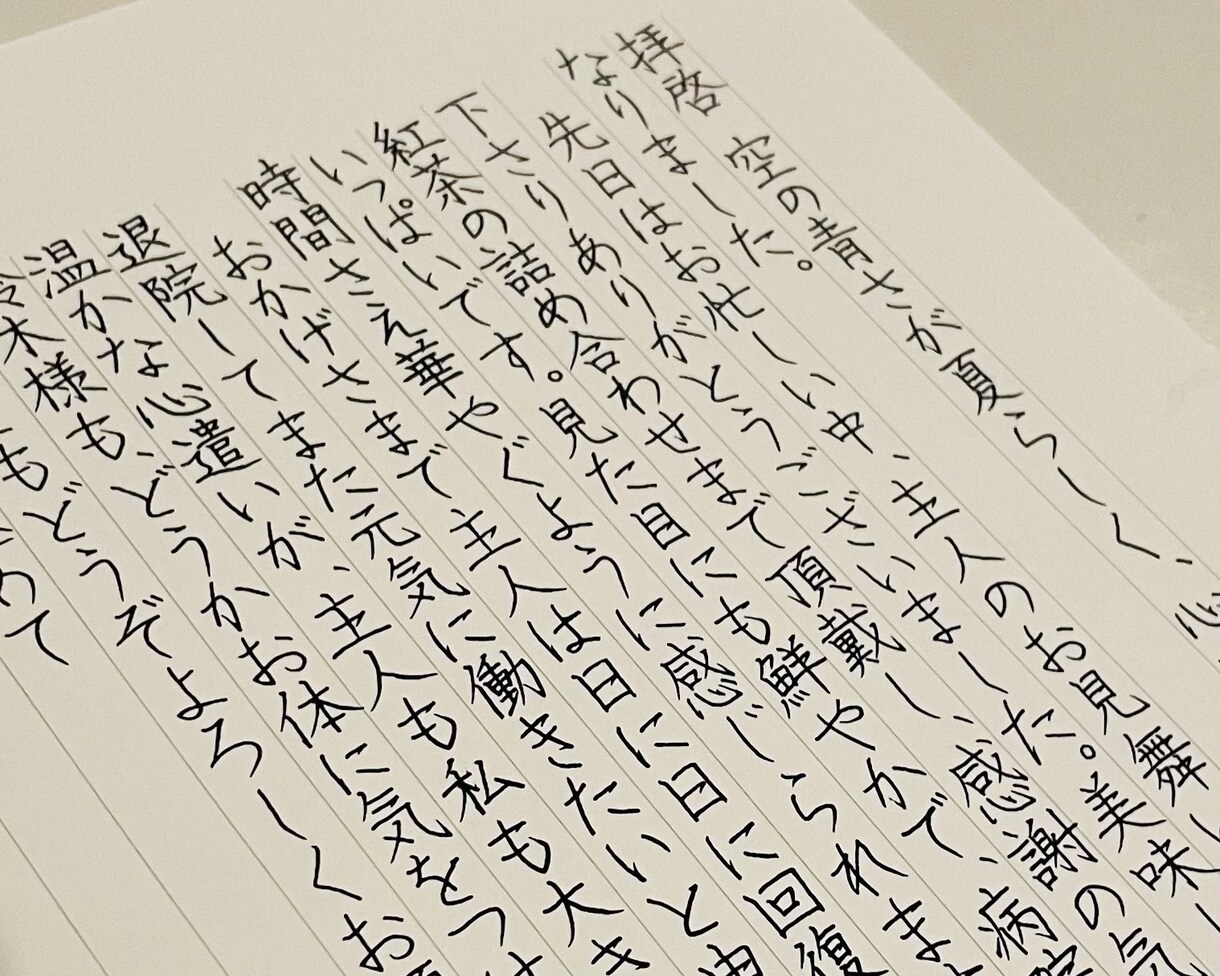 拝啓　空の青さが夏らしく、心
なりました。
先日はお忙しい中、主人のお見舞
下さりありがとうございました。美味し
紅茶の詰め合わせまで頂戴し、感謝の気
いっぱいです。見た目にも鮮やかで、病院
時間さえ華やぐように感じられま
おかげさまで主人は日に日に回復
退院してまた元気に働きたいと申
温かな心遣いが、主人も私も大き
木様も、どうかお体に気をつけ
もどうぞよろしくお
めて